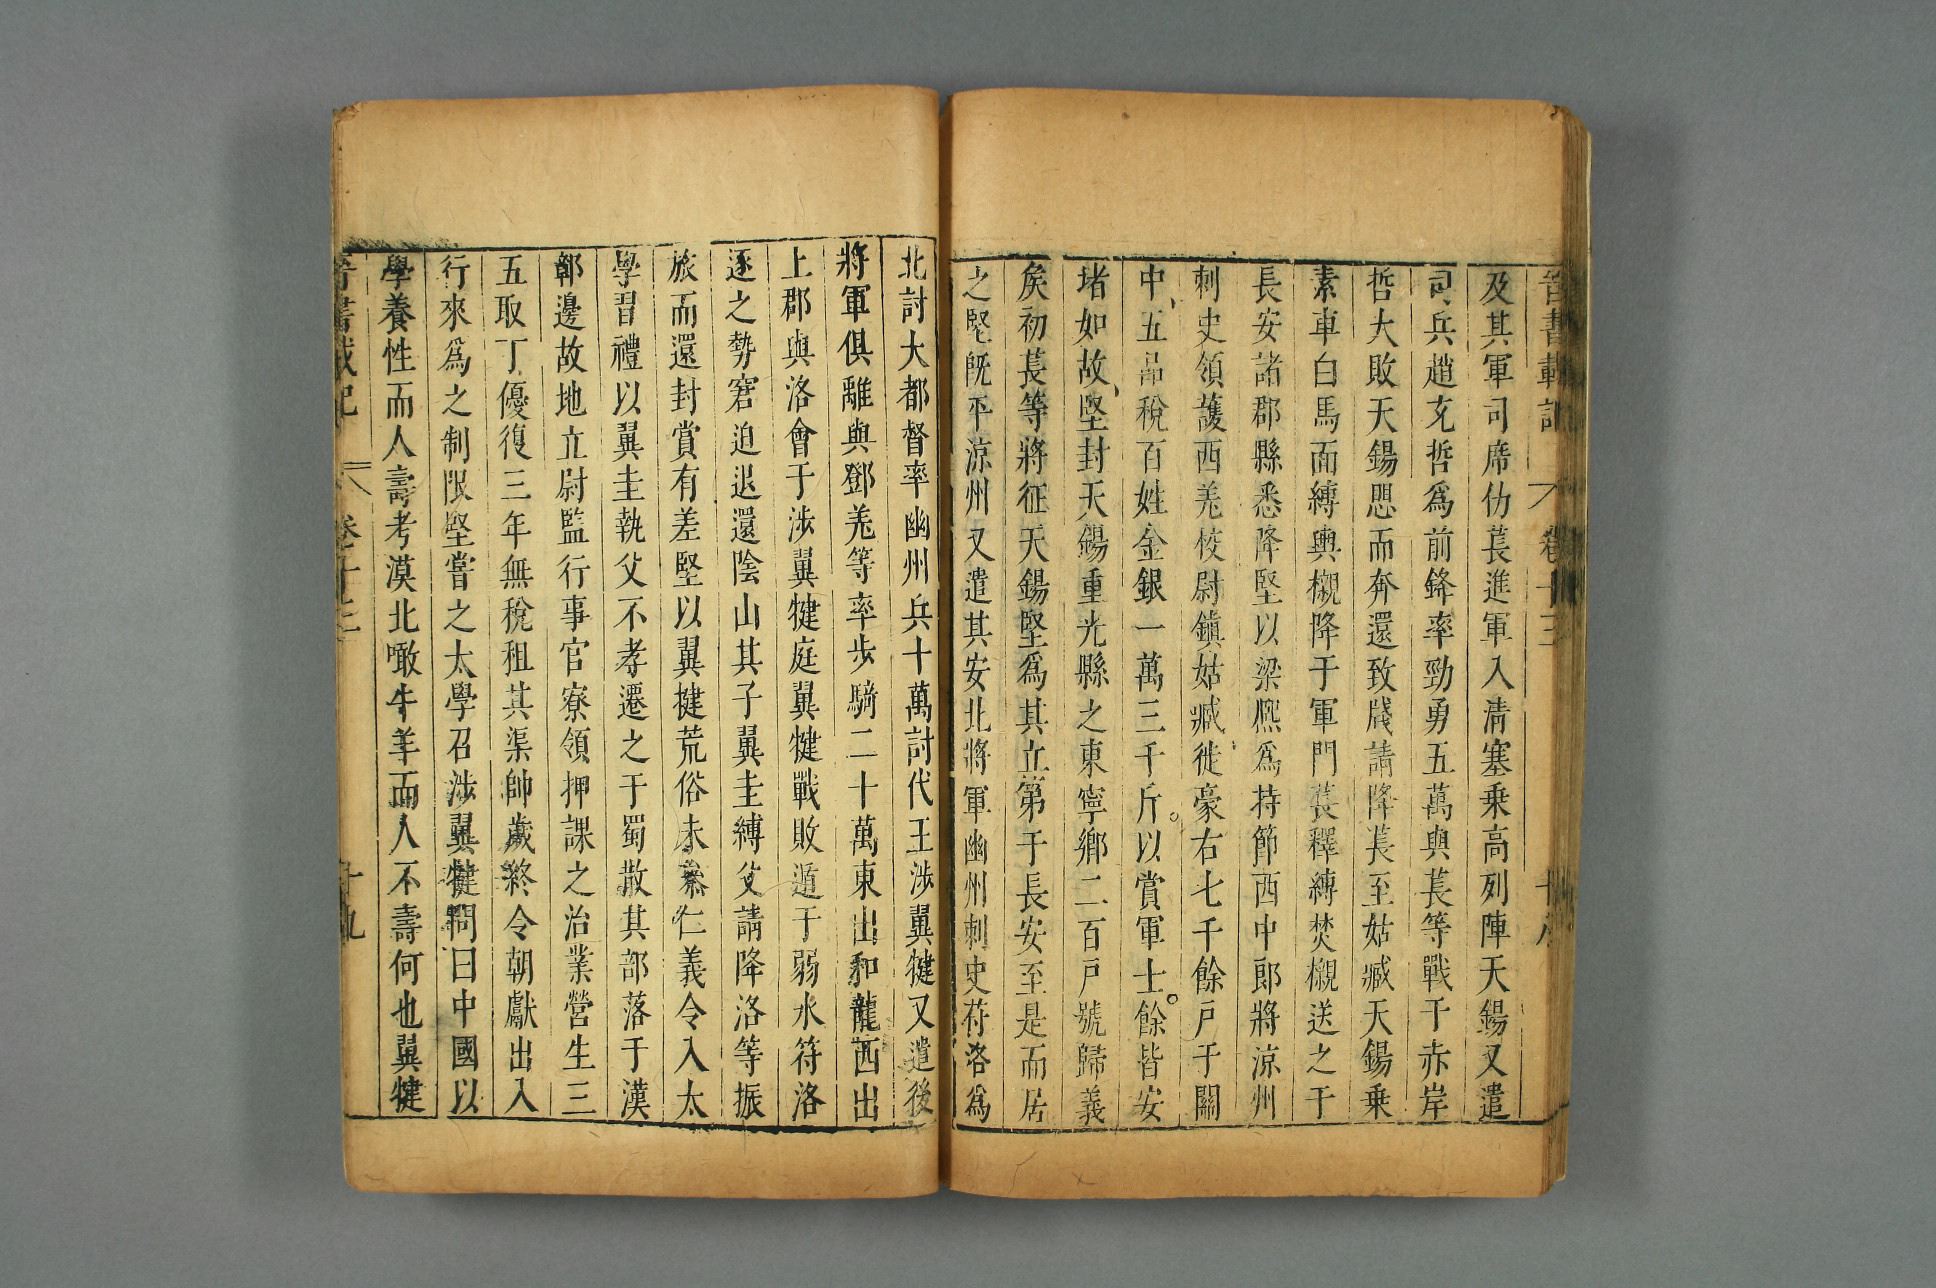 晉書載記 卷十三 十八
及其軍司席仂萇進軍入清塞乘高列陣天錫又遣
司兵趙充哲爲前鋒率勁勇五萬與萇等戰于赤岸
哲大敗天錫懼而奔還致牋請降萇至姑臧天錫乘
素車白馬面縛輿櫬降于軍門萇釋縛焚櫬送之于
長安諸郡縣悉降堅以梁熙爲持節西中郎將涼州
刺史領護西羌校尉鎮姑臧徙豪右七千餘戶于關
中五品稅百姓金銀一萬三千斤以賞軍士餘皆安
堵如故堅封天錫重光縣之東寧鄉二百戶號歸義
矦初萇等將征天錫堅爲其立第于長安至是而居
之堅旣平涼州又遣其安北將軍幽州刺史苻洛爲
北討大都督率幽州兵十萬討代王涉翼犍又遣後
將軍俱難與鄧羌等率步騎二十萬東出和龍西出
上郡與洛會于涉翼犍庭翼犍戰敗遁于弱水符洛
逐之勢窘迫退還陰山其子翼圭縛父請降洛等振
旅而還封賞有差堅以翼犍荒俗未叅仁義令入太
學習禮以翼圭執父不孝遷之于蜀散其部落于漢
鄣邊故地立尉監行事官寮領押課之治業營生三
五取丁優復三年無稅租其渠帥歲終令朝獻出入
行來爲之制限堅嘗之太學召涉翼犍問曰中國以
學養性而人壽考漠北噉牛羊而人不壽何也翼犍
晉書載記 卷十三 十九